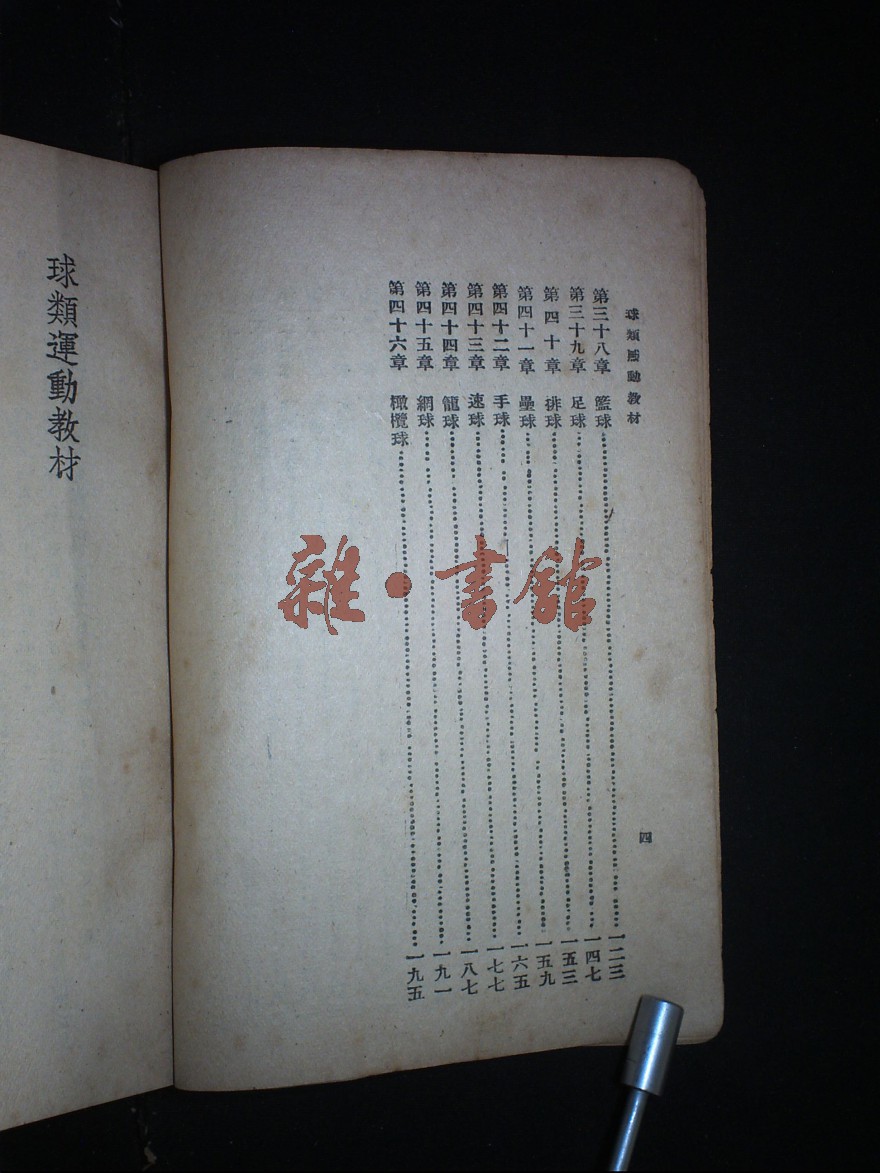 球類運動教材
四
第三十八章 籃球 一二三
第三十九章 足球 一四七
第四十章 排球 一五三
第四十一章 壘球 一五九
第四十二章 手球 一六五
第四十三章 速球 一七七
第四十四章 籠球 一八七
第四十五章 網球 一九一
第四十六章 橄欖球 一九五
球類運動教材
雜·書館